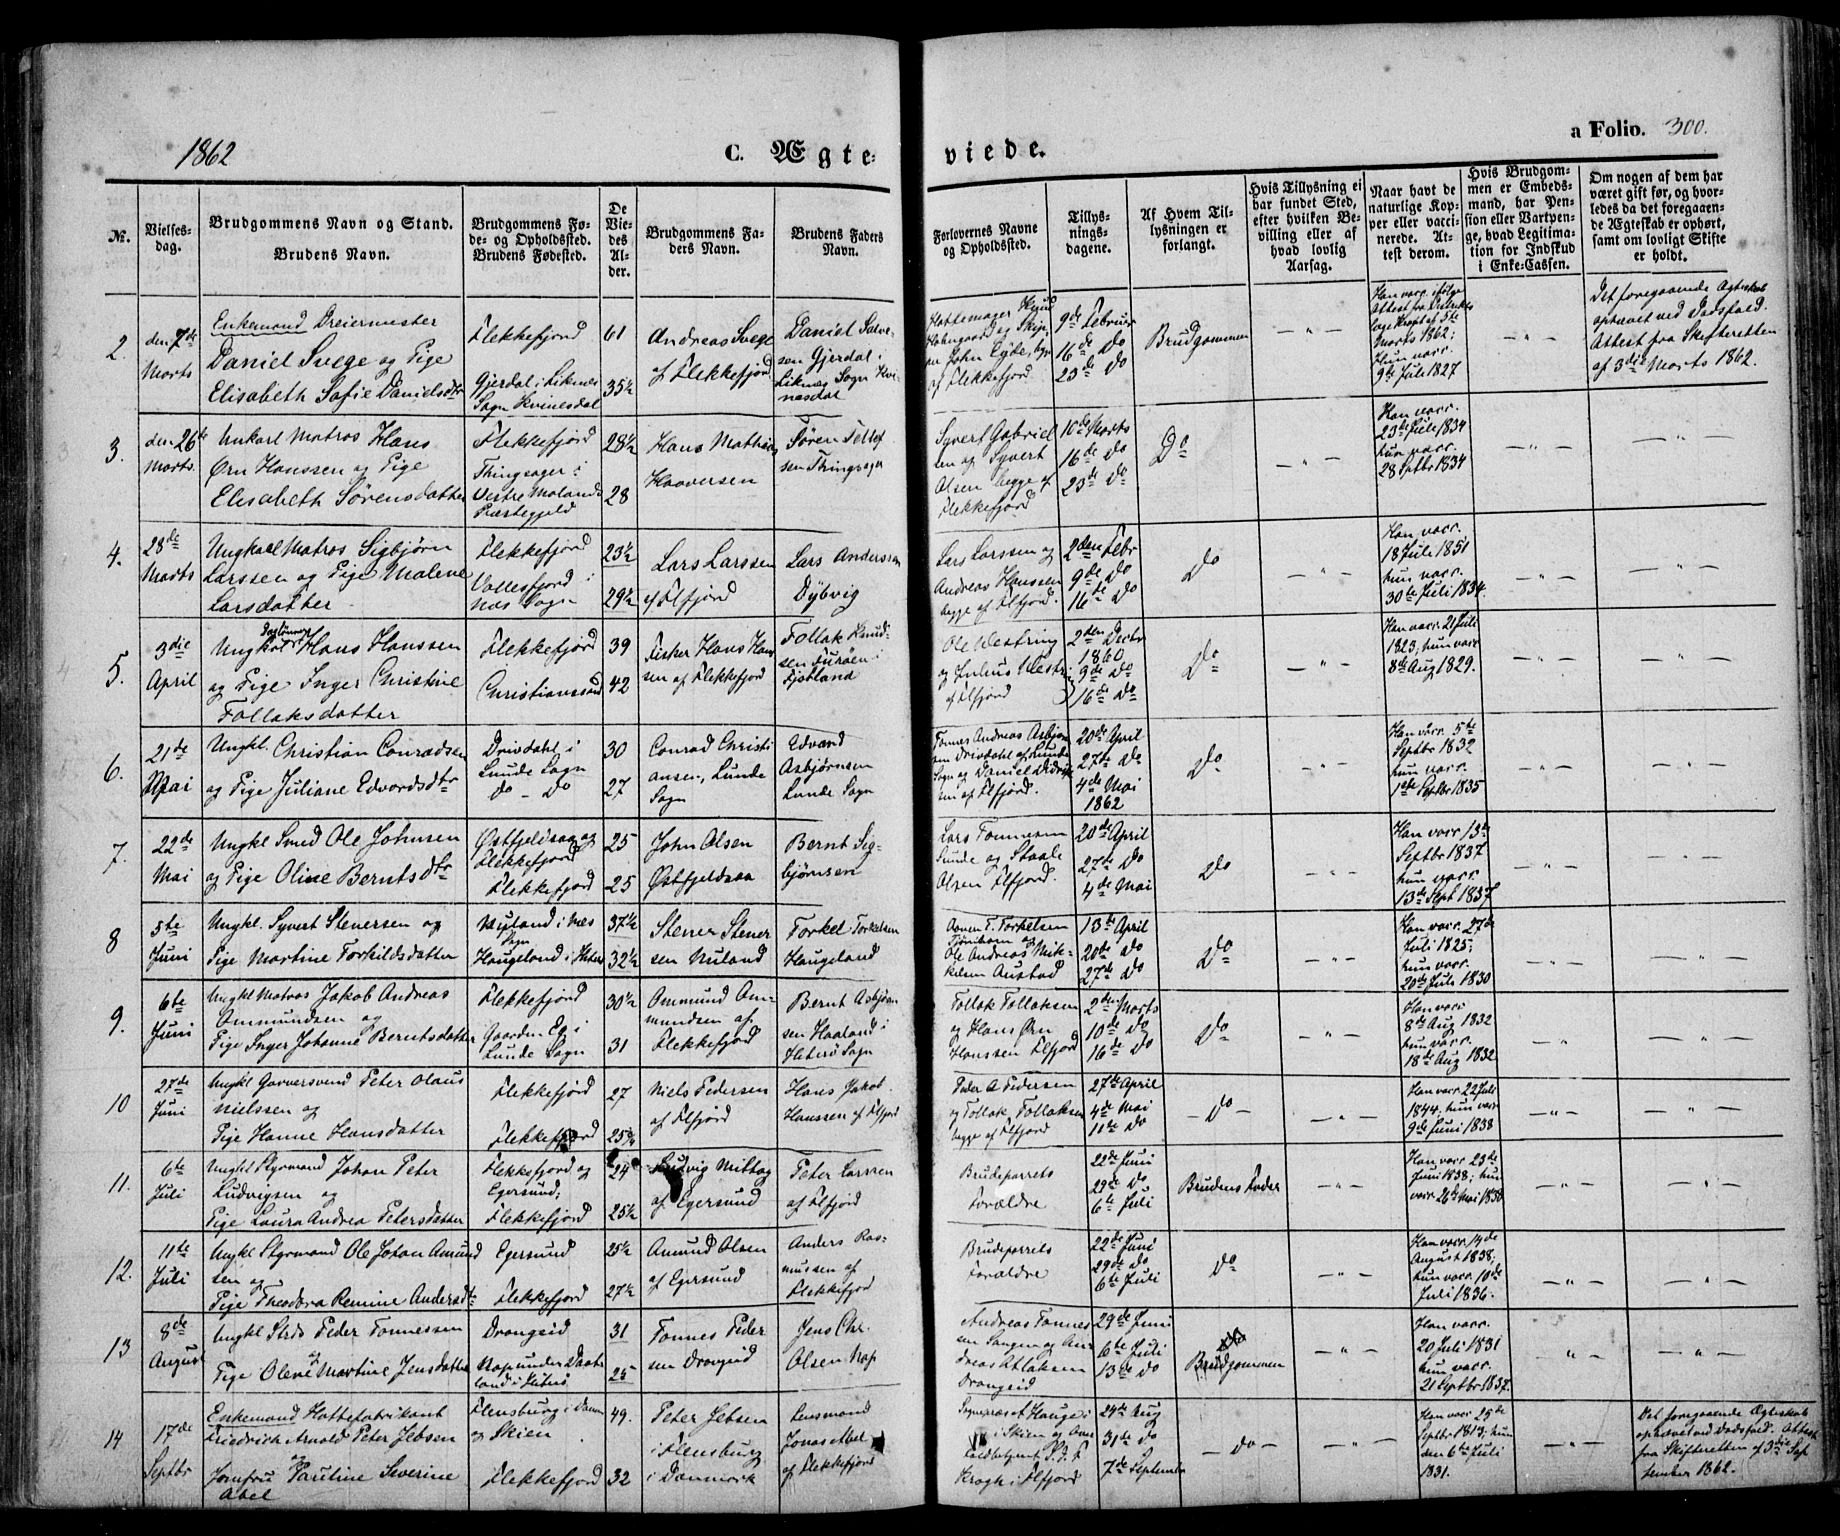 1862
C. Ægteviede.
a Folio. 300.
No.
Vielsesdag.
Brudgommens Navn og Stand.
Brudens Navn.
BrudgommensFøde- og Opholdssted.
Brudens Fødested.
De Viedes Alder.
Brudgommens Faders Navn.
Brudens Faders Navn.
Forlovernes Navne og Opholdssted.
Tillysningsdagene.
Af Hvem Tillysningen er forlangt.
Hvis Tillysning ei har fundet Sted, efter hvilken Bevilling eller af hvad lovlig Aarsag.
Naar havt de naturlige Kopper eller vaccinerede. Attest derom.
Hvis Brudgommen er Embedsmand, har Pension eller Vartpenge, hvad Legitimation for Indskud i Enke-Cassen.
Om nogen af dem har været gift før, og hvorledes da det foregaaende Ægteskab er ophørt, samt om lovligt Skifte er holdt.
2.
den 7de
Marts
Enkemand Dreiermester
Daniel Svege og Pige
Elisabeth Sofie Danielsdtr
Flekkefjord
Gjerdal i Liknes
Sogn Kvinesdal
61
35½
Andreas Svege
af Flekkefjord
Daniel Salve-
sen Gjerdal i
Liknes Sogn Kvi-
nesdal
Hattemager Knud
John Eyde, begge
af Flekkefjord
9de Februar
16de Do
23de Do
Brudgommen
— " —
Han vacc. ifølge
Attest fra Distrikts
læge 5te
Marts 1862;
Hun vacc.
9de Juli 1827
— " —
Det foregaaende Ægteskab
ophævet ved Dødsfald.
Attest fra Skifteretten
af 3die Marts 1862.
3.
den 26de
Marts.
Unkarl Matros Hans
Ørn Hanssen og Pige
Elisabeth Sørensdatter
Flekkefjord
Thingsager i
Vestre Molands
Præstegjeld
28½
28
Hans Mathias
Haaversen
Søren Tellef
sen Thingsager
Syvert Gabriel
sen og Syvert
Olsen begge af
Flekkefjord
10de Marts
16de Do
23de Do
Do
— " —
Han vacc.
23de Juli 1834
hun vacc.
28 Septbr 1834
— " —
— " —
4.
28de
Marts
Ungkarl Matros Sigbjørn
Larssen og Pige Malene
Larsdatter
Flekkefjord
Vollesfjord i
Næs Sogn
23½
29½
Lars Larssen
af Flfjord
Lars Anderssen
Dybvig
Lars Larssen og
Andreas Hanssen
begge af Flfjord.
2den Febr
9de Do
16de Do
Do
— " —
Han vacc.
18 Juli 1851
hun vacc.
30te Juli 1834.
— " —
— " —
5.
3die
April
Ungkarl Hans Hanssen
og Pige Inger Christine
Tollaksdatter
Flekkefjord
Christianssand
39
42
Fisker Hans Han
sen af Flekkefjord
Tollak Knud-
sen Furøen i
Fjotland
Ole Westring
og Julius Westring
af Flfjord
2den Decbr
1860
9de Do
16de Do
Do
— " —
Han vacc. 21 Juli
1823; hun vacc.
8de Aug 1829.
— " —
— " —
6.
21de
Mai
Ungkl. Christian Conradsen
og Pige Juliane Edvardsdtr
Drivdahl i
Lunde Sogn
do - do
30
27
Conrad Christi
ansen, Lunde
Sogn
Edvard
Asbjørnsen
Lunde Sogn
Tønnes Andreas Asbjørn
sen Drivdahl af Lunde
Sogn og Daniel Didrik
sen af Flfjord.
20de April
27de Do
4de Mai
1862
Do
— " —
Han vacc. 5te
Septbr 1832
hun vacc.
1ste Septbr 1835
— " —
— " —
7.
22de
Mai
Ungkl Smed Ole Johnsen
og Pige Oline Berntsdtr
Østfjeldsaa og
Flekkefjord
Flekkefjord
25
25
John Olsen
Østfjeldsaa
Bernt Sig-
bjørnsen
Lars Tønnesen
Lunde og Staale
Olsen Flfjord.
20de April
27de Do
4de Mai
Do
— " —
Han vacc 13de
Septbr 1837
hun vacc.
13de Sept 1837
— " —
— " —
8
5te
Juni
Ungkl. Syvert Stenersen og
Pige Martine Torkildsdatter
Nuland i Næs
Sogn
Haugeland i Hiterø
37½
32½
Stener Stener
sen Nuland
Torkel Torkelsen
Haugeland
Aanen T. Torkelsen
Ole Andreas Mik-
kelsen Austad
13de April
20de Do
27de Do
Do
— " —
Han vacc. 27de
Juli 1825;
hun vacc.
20de Juli 1830
— " —
— " —
9.
6te
Juni
Ungkl Matros Jakob Andreas
Ommundsen og
Pige Inger Johanne Berntsdatter
Flekkefjord
Gaarden Eg i
Lunde Sogn
30½
31
Ommund Om-
mundsen af
Flekkefjord
Bernt Asbjørn
sen Haaland i
Hiterø Sogn
Tollak Tollaksen
og Hans Ørn
Hanssen Flfjord
2den Marts
10de Do
16de Do
Do
— " —
Han vacc
8de Aug 1832
hun vacc.
18de Aug 1832.
— " —
— " —
10
27de
Juni
Ungkl Garversvend Peter Olaus
Nielssen og
Pige Hanne Hansdatter
Flekkefjord
Flekkefjord
27
25¾
Niels Pedersen
af Flfjord
Hans Jakob
Hanssen af Flfjord
Peder A Pedersen
og Tollak Tollaksen
begge af Flfjord
27de April
4de Mai
11te Do
— Do —
— " —
Han vacc. 22 Juli
1844. hun vacc
9de Juni 1838
— " —
— " —
11.
6te
Juli
Ungkl Styrmand Johan Peter
Ludvigsen og
Pige Laura Andrea Petersdatter
Flekkefjord og
Egersund;
Flekkefjord
24
25½
Ludvig Mittag
af Egersund
Peter Larsen
af Flfjord
Brudeparrets
Forældre
22de Juni
29de Do
6te Juli
Brudens Fader
— " —
Han vacc 23de
Juni 1838; hun
vacc. 26de Mai 1838
— " —
— " —
12.
11te
Juli
Ungkl Styrmand Ole Johan Amund
sen og
Pige Theodora Remine Andersdtr
Egersund
Flekkefjord
25½
27½
Amund Olsen
af Egersund
Anders Ras-
mussen af
Flekkefjord
Brudeparrets
Forældre
22de Juni
29de Do
6te Juli
Do
— " —
Han vacc 14de
August 1838;
hun vacc. 10de
Juli 1836.
— " —
— " —
13
8de
August
Ungkl Strds Peder Tønnessen
og
Pige Olene Martine Jensdatter
Drangeid
Rap under Daate
land i Hiterø
31
25
Tønnes Peder
sen Drangeid
Jens Chr.
Olsen Rap
Andreas Tønnes
sen Langen og An
dreas Atlaksen
Drangeid
29de Juni
6te Juli
13de Do
Brudgommen
— " —
Han vacc.
20 Juli 1831
hun vacc.
21 Septbr 1837.
— " —
— " —
14
17de
Septbr
Enkemand Hattefabrikant
Friedrich Arnold Peter Jebsen
og
Jomfru Pauline Severine
Abel
Flensburg i Danm
og Skien
Flekkefjord
49.
32
Peter Jebsen
i Flensburg
i Danmark
Lensmand
Jonas Abel
af Flekkefjord
Hauge i
i Skien og Over
toldbetjent P. J. F
Krogh i Flfjord
24de Aug
31de Do
7de September
— do —
— " —
Han vacc 25de
Septbr 1813; hun
den 6te Juli
1831.
— " —
Det foregaaende Ægteskab
ophævet ved Dødsfald. Attest
fra Skifteretten af 3die Sep
tember 1862.